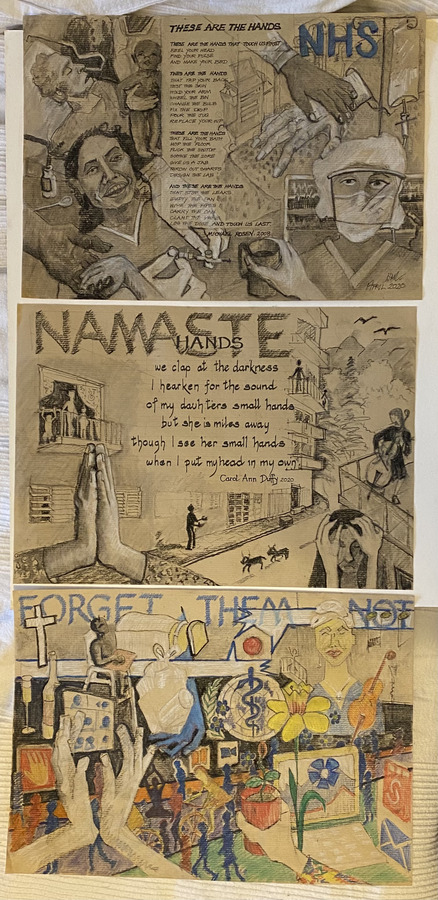 THESE ARE THE HANDS
NHS
THESE ARE THE HANDS THAT TOUCH US FIRST
FEEL YOUR HEAD
FIND YOUR PULSE
AND MAKE YOUR BED
THESE ARE THE HANDS
THAT TAP YOUR BACK
TEST THE SKIN
HOLD YOUR ARM
WHEEL THE BIN
CHANGE THE BULB
FIX THE DRIP
POUR THE JUG
REPLACE YOUR HIP
THESE ARE THE HANDS
THAT FILL YOUR BATH
MOP THE FLOOR
FLICK THE SWITCH
SOOTHE THE SORE
GIVE US A JAB
THROW OUT SHARPS
DESIGN THE LAB
AND THESE ARE THE HANDS
THAT STOP THE LEAKS
EMPTY THE PAN
WIPE THE PIPES
CARRY THE CAN
CLAMP THE VEINS
AND TOUCH US LAST
MICHAEL ROSEN. 2008
APRIL 2020
NAMASTE
HANDS
we clap at the darkness
I hearken for the sound
of my dauhters small hands
but she is miles away
though I see her small hands
when I put my head in my own.
Carol Ann Duffy 2020
FORGET THEM NOT